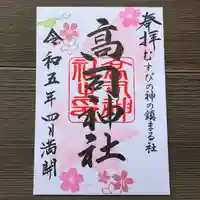 奉拝
むすびの神の鎮まる社
高司神社
令和五年四月満開